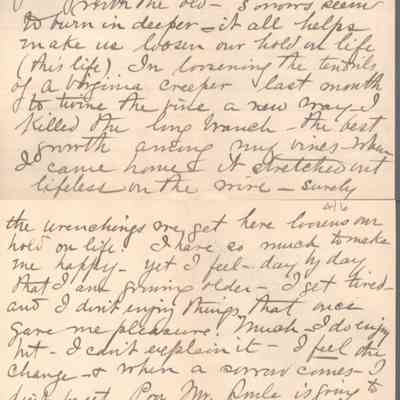 with the old - sorrows seem
to burn in deeper - it all helps
make us loosen our hold on life
(this life) In loosening the tendrils
of a Virginia creeper last month
to twine the vine a new way - I
killed the long branch - the best
growth among my vines - when
I came home it stretched out
lifeless on the wire - surely
4/6
the wrenchings we get here loosens our
hold on life. I have so much to make
me happy - yet I feel - day by day
that I am growing older - I get tired -
and I don't enjoy things that once
gave me pleasure. Much - I do enjoy
but - I can't explain it - I feel the
change - & when a sorrow comes - I
Poor Mr. is going to